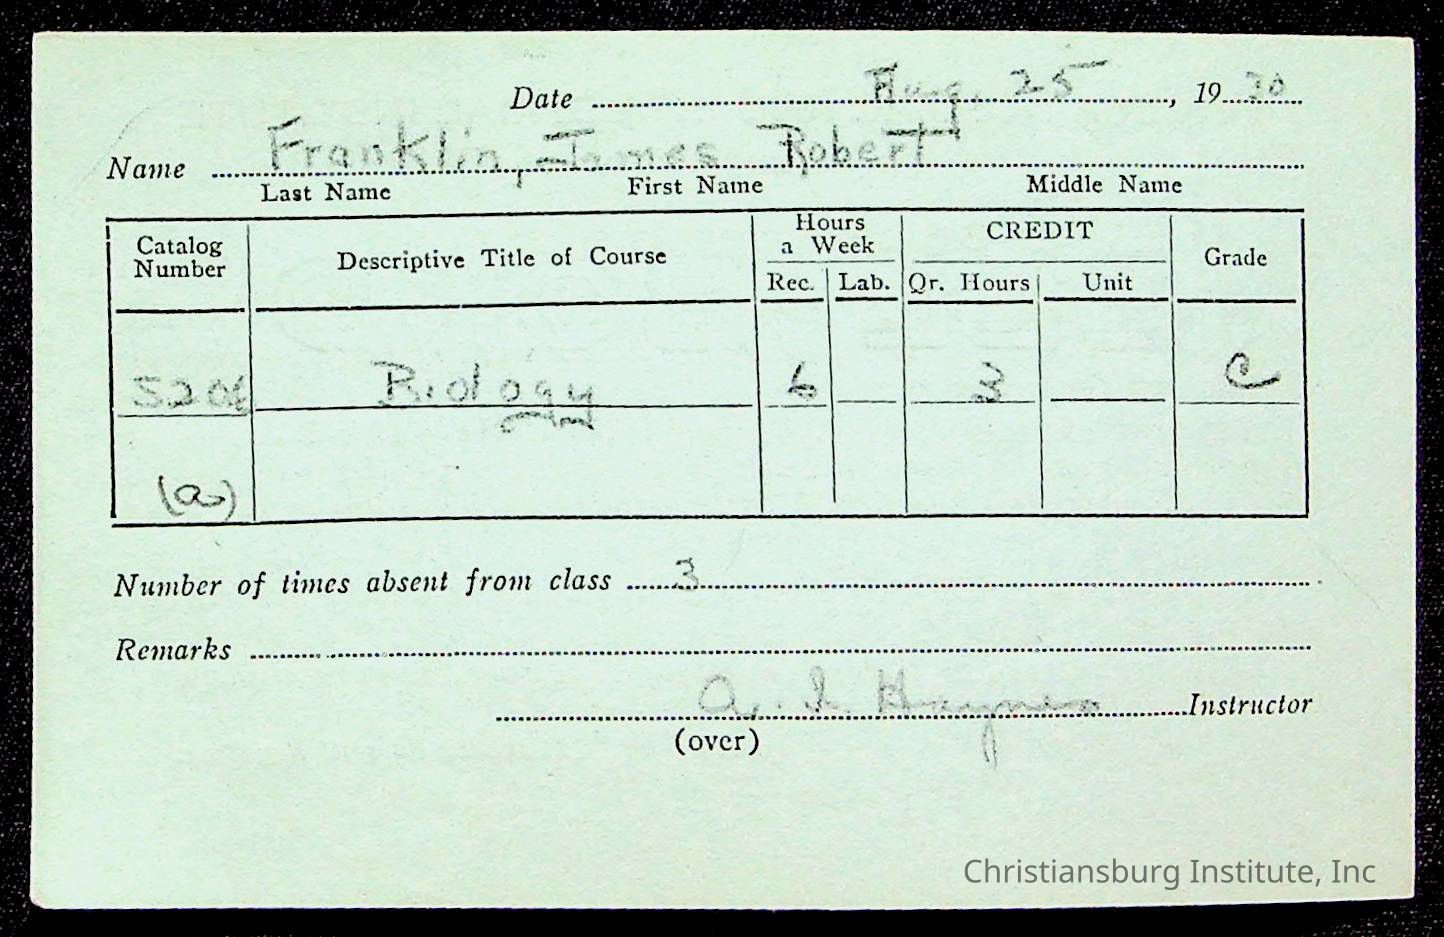 Date Aug. 25, 1930
Name Franklin, James Robert
Last Name First Name Middle Name
Catalog Number Descriptive Title of Course Hours a Week CREDIT Grade
Rec. Lab. Qr. Hours Unit
Biology 6 3 C
(a)
Number of times absent from class 3
Remarks
Haynes Instructor
(over)
Christiansburg Institute, Inc